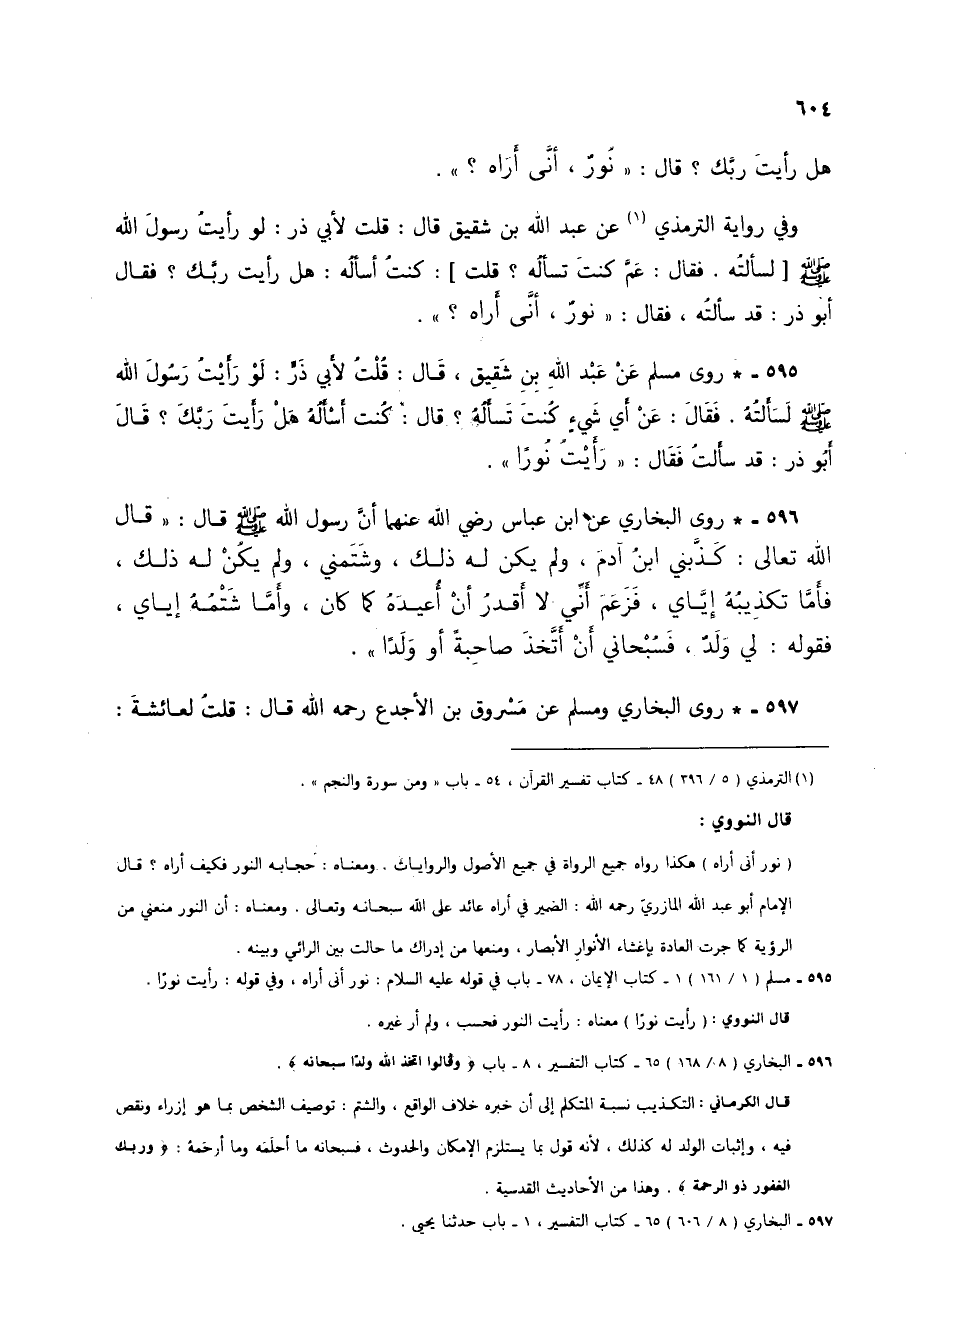 ٦٠٤
هل رأيتَ ربَّك ؟ قال : « نُورٌ ، أنَّى أَرَاه ؟ » .
وفي رواية الترمذي (١) عن عبد الله بن شقيق قال : قلت لأبي ذر : لو رأيتُ رسولَ الله
ﷺ [ لسألتُه . فقال : عَمَّ كنتَ تسألُه ؟ قلت ] : كنتُ أسألُه : هل رأيت ربَّـك ؟ فقـال
أبو ذر : قد سألتُه ، فقال : « نورٌ ، أنَّى أَراه ؟ » .
٥٩٥ - * روى مسلم عَنْ عَبْد الله بن شَقِيق ، قَـال : قُلْتُ لأبي ذَرٍّ : لَوْ رَأَيْتُ رَسُولَ الله
ﷺ لَسَأَلتُهُ . فَقَالَ : عَنْ أي شَيءٍ كُنتَ تَسألُهُ ؟ قال : كُنت أسْألُهُ هَلْ رَأَيتَ رَبَّكَ ؟ قَـالَ
أَبُو ذر : قد سألتُ فَقَال : « رَأَيْتُ نُورًا » .
٥٩٦ - * روى البخاري عن ابن عباس رضي الله عنهما أنَّ رسول الله ﷺ قـال : « قـال
الله تعالى : كَـذَّبني ابنُ آدمَ ، ولم يكن لـه ذلـك ، وشَتَمني ، ولم يكُنْ لـه ذلـك ،
فأمَّا تكذيبُهُ إيَّـاي ، فَزَعَمَ أنّي لا أقـدرُ أنْ أُعيـدَهُ كما كان ، وأمَّـا شَتْمُـهُ إيـاي ،
فقوله : لي وَلَدٌ ، فَسُبْحاني أنْ أتَّخذَ صاحبةً أو وَلَدًا » .
٥٩٧ - * روى البخاري ومسلم عن مَسْروق بن الأجدع رحمه الله قـال : قلتُ لعـائشـةَ :
(١) الترمذي ( ٥ / ٣٩٦ ) ٤٨ - كتاب تفسير القرآن ، ٥٤ - باب « ومن سورة والنجم » .
قال النووي :
( نور أنى أراه ) هكذا رواه جميع الرواة في جميع الأصول والروايـات . ومعنـاه : حجـابـه النور فكيف أراه ؟ قـال
الإمام أبو عبد الله المازريّ رحمه الله : الضمير في أراه عائد على الله سبحـانـه وتعـالى . ومعنـاه : أن النور منعني من
الرؤية كما جرت العادة بإغشاء الأنوار الأبصار ، ومنعها من إدراك ما حالت بين الرائي وبينه .
٥٩٥ - مسلم ( ١ / ١٦١ ) ١ - كتاب الإيمان ، ٧٨ - باب في قوله عليه السلام : نور أنى أراه ، وفي قوله : رأيت نورًا .
قال النووي : ( رأيت نورًا ) معناه : رأيت النور فحسب ، ولم أر غيره .
٥٩٦ - البخاري ( ٨ / ١٦٨ ) ٦٥ - كتاب التفسير ، ٨ - باب ﴿ وقالوا اتخذ الله ولدًا سبحانه ﴾ .
قـال الكرمـاني : التكـذيب نسبـة المتكلم إلى أن خبره خلاف الواقع ، والشتم : توصيف الشخص بمـا هو إزراء ونقص
فيه ، وإثبات الولد له كذلك ، لأنه قول بما يستلزم الإمكان والحدوث ، فسبحانه ما أحلَمَه وما أرحَمَه : ﴿ وربـك
الغفور ذو الرحمة ﴾ . وهذا من الأحاديث القدسية .
٥٩٧ - البخاري ( ٨ / ٦٠٦ ) ٦٥ - كتاب التفسير ، ١ - باب حدثنا يحيى .